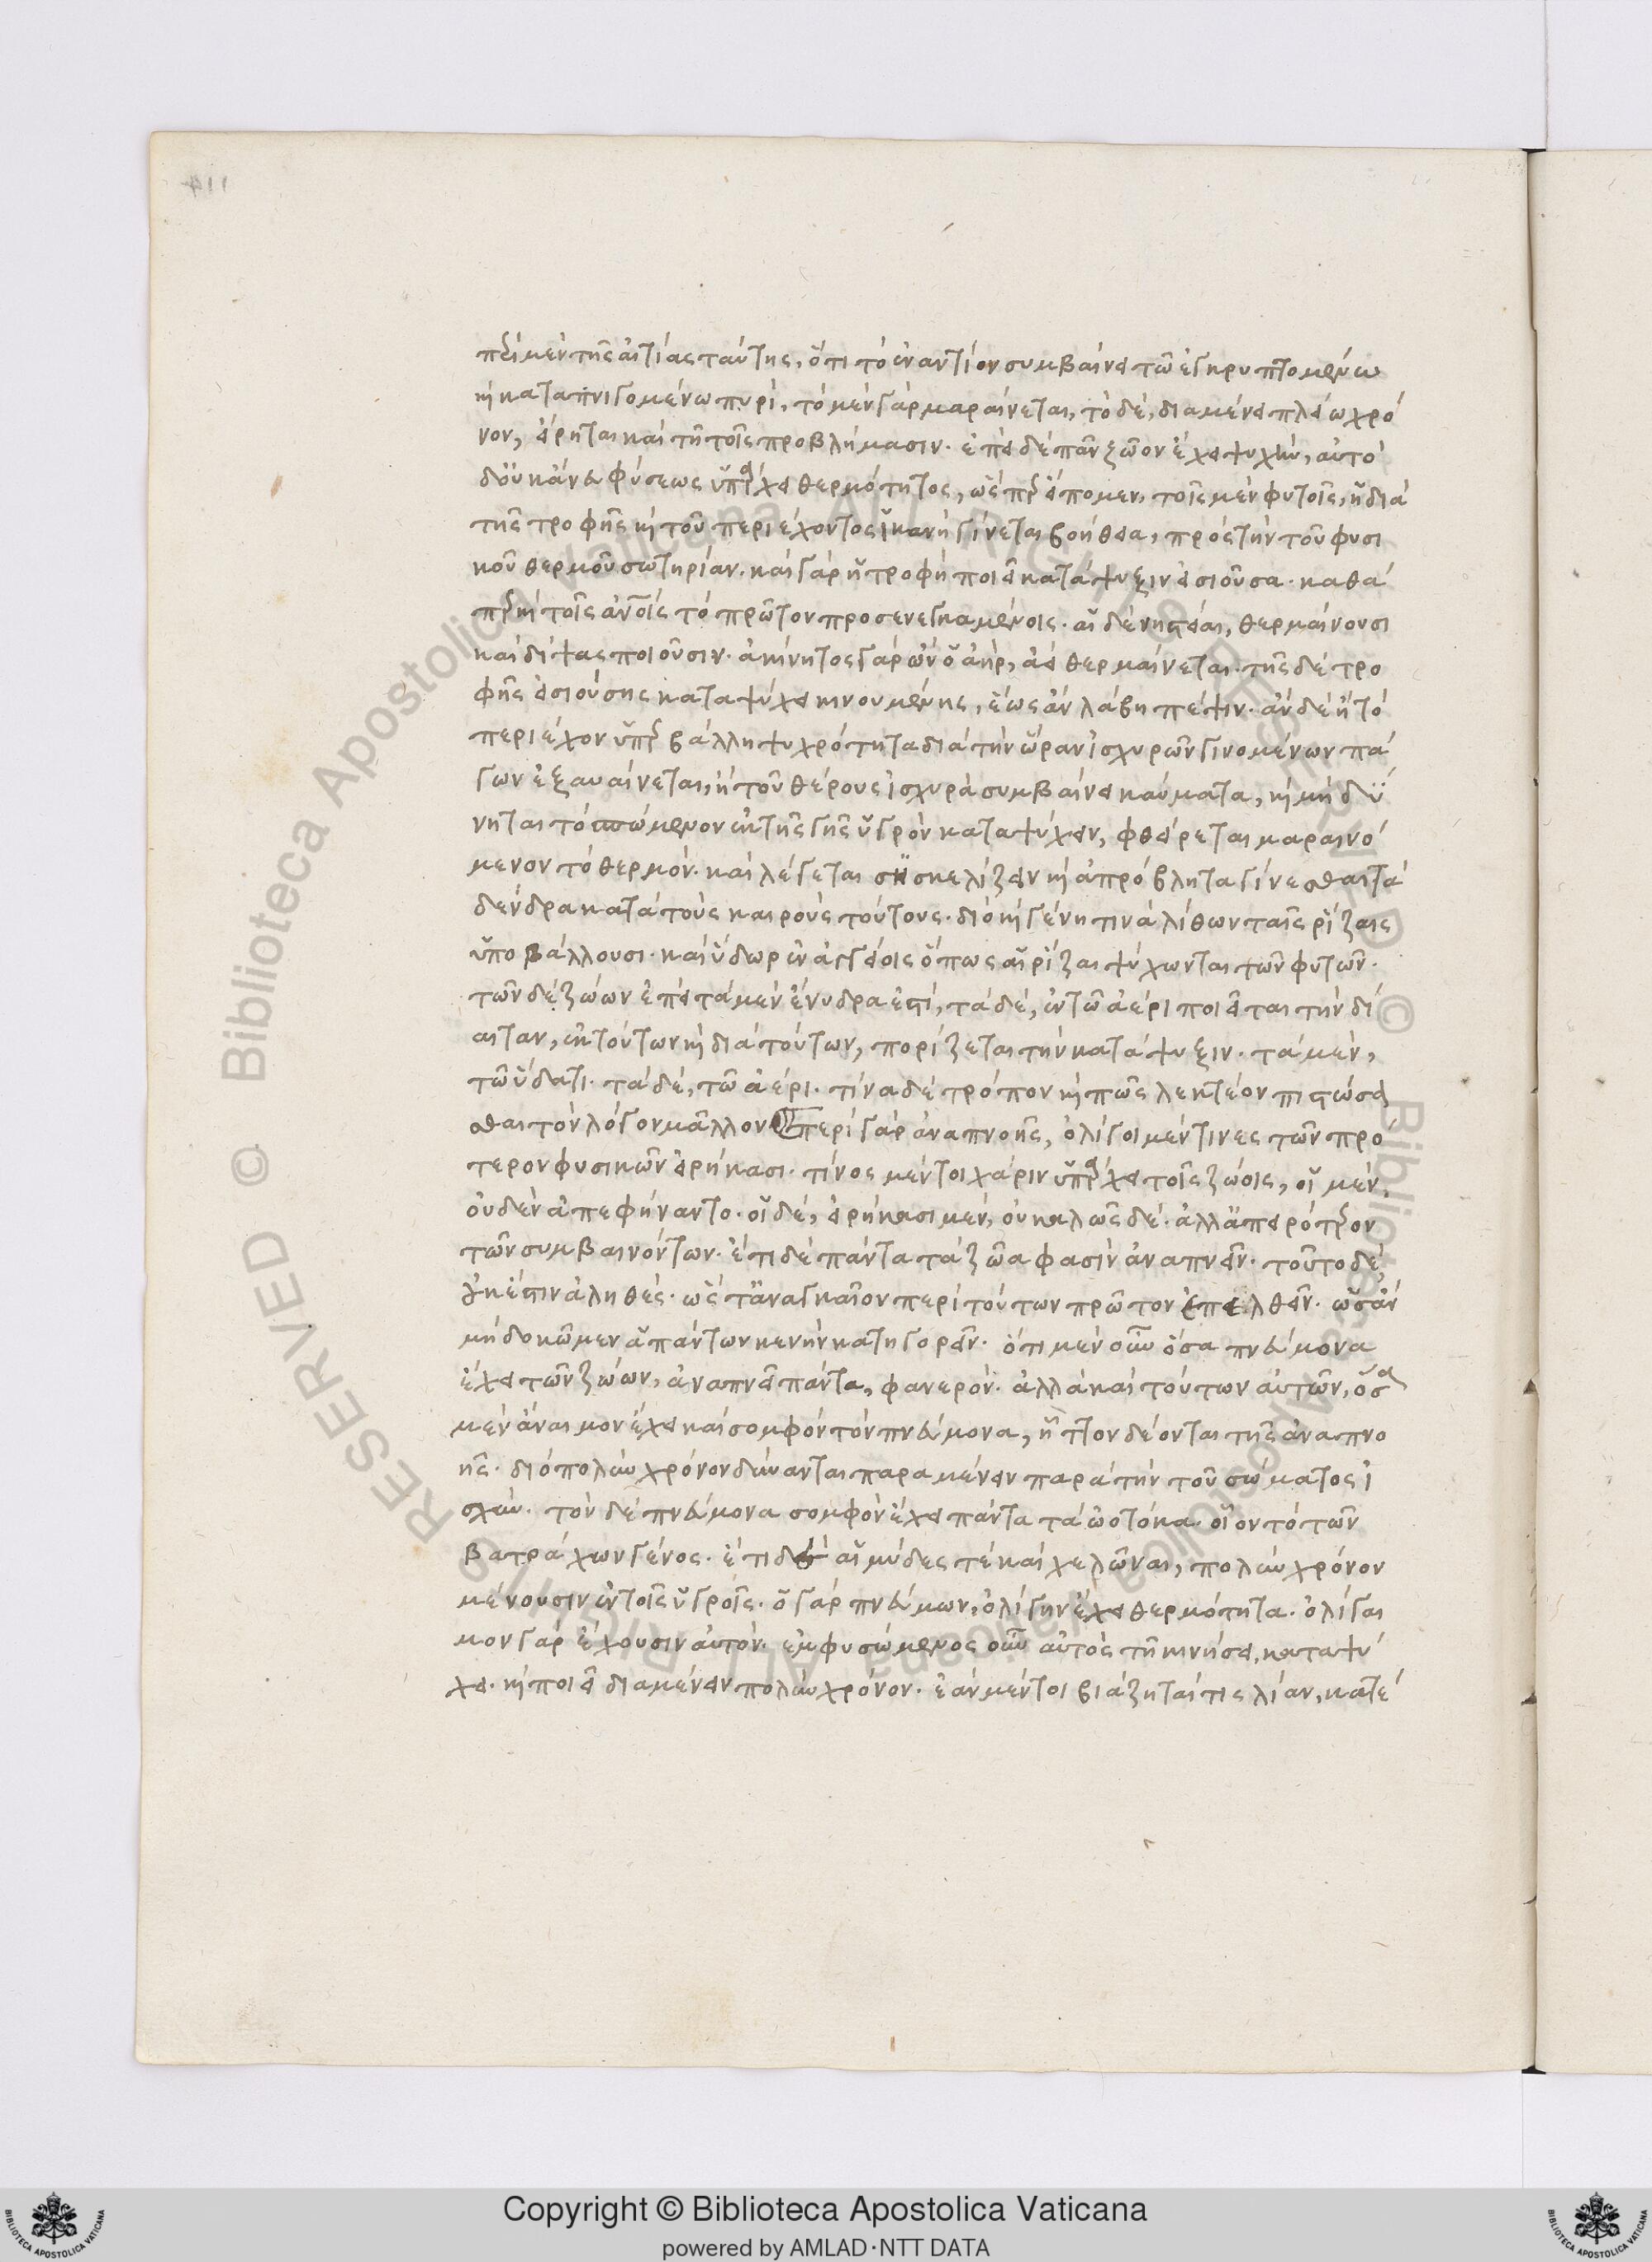 περὶ μὲν τῆς αἰτίας ταύτης, ὅτι τὸ ἐναντίον συμβαίνει τῶ ἐγκρυπτομένω
καὶ καταπνιγομένω πυρί, τὸ μὲν γὰρ μαραίνεται, τὸ δὲ, διαμένει πλείω χρό
νον, εἴρηται καὶ τῆ τοῖς προβλήμασιν. ἐπεὶ δὲ πᾶν ζῶον ἔχει ψυχὴν, αὐτὸ
δ' οὐκ ἄνευ φύσεως ὑπάρχει θερμότητος, ὥσπερ εἴπομεν, τοῖς μὲν φυτοῖς, ἡ διὰ
τῆς τροφῆς καὶ τοῦ περιέχοντος ἱκανὴ γίνεται βοήθεια, πρὸς τὴν τοῦ φυσι
κοῦ θερμοῦ σωτηρίαν. καὶ γὰρ ἡ τροφὴ ποιεῖ κατάψυξιν εἰσιοῦσα. καθά
περ καὶ τοῖς ἀνοις τὸ πρῶτον προσενεγκαμένοις. αἱ δὲ νηστεῖαι, θερμαίνουσι
καὶ δίψας ποιοῦσιν. ἀκίνητος γὰρ ὢν ὁ ἀὴρ, ἀεὶ θερμαίνεται. τῆς δὲ τρο
φῆς εἰσιούσης καταψύχει κινουμένης, ἕως ἂν λάβη πέψιν. ἂν δὲ ἢ τὸ
περιέχον ὑπερβάλλη ψυχρότητα διὰ τὴν ὥραν ἰσχυρῶν γινομένων πά
γων ἐξαυαίνεται, ἢ τοῦ θέρους ἰσχυρὰ συμβαίνει καύματα, καὶ μὴ δύ
νηται τὸ σπώμενον ἐκ τῆς γῆς ὑγρὸν καταψύχειν, φθείρεται μαραινό
μενον τὸ θερμόν. καὶ λέγεται σκελίζειν καὶ ἀπρόβλητα γίνεσθαι τὰ
δένδρα κατὰ τοὺς καιροὺς τούτους. διὸ καὶ γένη τινὰ λίθων ταῖς ῥίζαις
ὑποβάλλουσι. καὶ ὕδωρ ἐν ἀγγείοις ὅπως αἱ ῥίζαι ψύχωνται τῶν φυτῶν.
τῶν δὲ ζώων ἐπεὶ τὰ μὲν ἔνυδρα ἐστὶ, τὰ δὲ, ἐν τῶ ἀέρι ποιεῖται τὴν δί
αιταν, ἐκ τούτων καὶ διὰ τούτων, πορίζεται τὴν κατάψυξιν. τὰ μὲν,
τῶ ὕδατι. τὰ δὲ, τῶ ἀέρι. τίνα δὲ τρόπον καὶ πῶς λεκτέον πιστώσα
σθαι τὸν λόγον μᾶλλον Περὶ γὰρ ἀναπνοῆς, ὀλίγοι μέν τινες τῶν πρό
τερον φυσικῶν εἰρήκασι. τίνος μέντοι χάριν ὑπάρχει τοῖς ζώοις, οἱ μὲν,
οὐδὲν ἀπεφήναντο. οἱ δὲ, εἰρήκασι μὲν, οὐ καλῶς δὲ. ἀλλ' ἀπειρότερον
τῶν συμβαινόντων. ἔτι δὲ πάντα τὰ ζῶα φασὶν ἀναπνεῖν. τοῦτο δὲ
οὐκ ἔστιν ἀληθές. ὥστ' ἀναγκαῖον περὶ τούτων πρῶτον ἐπελθεῖν. ὡς ἂν
μὴ δοκῶμεν ἁπάντων κενὴν κατηγορεῖν. ὅτι μὲν οὖν ὅσα πνεύμονα
ἔχει τῶν ζώων, ἀναπνεῖ πάντα, φανερόν. ἀλλὰ καὶ τούτων αὐτῶν, ὅσα
μὲν ἄναιμον ἔχει καὶ σομφὸν τὸν πνεύμονα, ἧττον δέονται τῆς ἀναπνο
ῆς. διὸ πολὺν χρόνον δύνανται παραμένειν παρὰ τὴν τοῦ σώματος ἰ
σχύν. τὸν δὲ πνεύμονα σομφὸν ἔχει πάντα τὰ ὠοτόκα. οἷον τὸ τῶν
βατράχων γένος. ἔτι δὲ αἱ μύδες τὲ καὶ χελῶναι, πολὺν χρόνον
μένουσιν ἐν τοῖς ὑγροῖς. ὁ γὰρ πνεύμων, ὀλίγην ἔχει θερμότητα. ὀλίγαι
μον γὰρ ἔχουσιν αὐτόν. ἐμφυσώμενος οὖν αὐτὸς τῆ κινήσει, καταψύ
χει. καὶ ποιεῖ διαμένειν πολὺν χρόνον. ἐὰν μέντοι βιάζηταί τις λίαν, κατέ
114
Copyright © Biblioteca Apostolica Vaticana
powered by AMLAD·NTT DATA